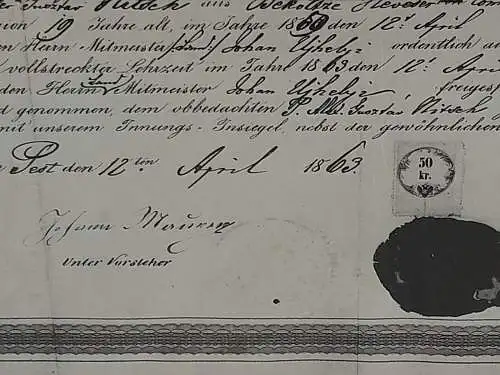 aus Heveser Com
19 Jahre alt, im Jahre 1860 den 12t April
en Herrn Mitmeister Johan Ujhelyi ordentlich
vollstreckte Lehrzeit im Jahre 1863 den 12t April
den Herrn Mitmeister Johan Ujhelyi, freiges
d genommen, dem obbedachten Gusztav
mit unserem Innungs-Insiegel, nebst der gewöhnlichen
Pest den 12ten April 1863.
50
kr.
Johann
Unter Vorsteher